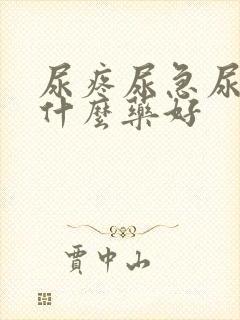 尿疼尿急尿
什麼藥好
賈中山